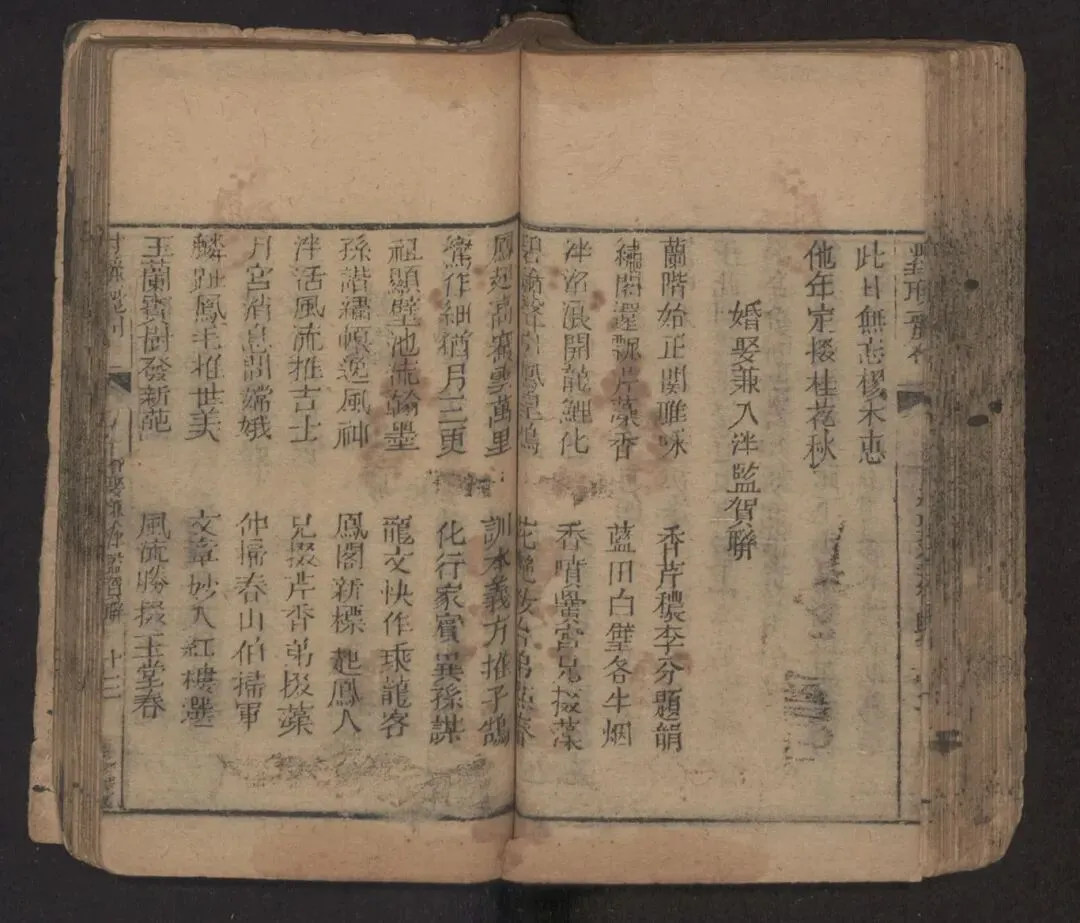 此日無忘樛木惠
他年定掇桂花秋
婚娶兼入泮監賀聯
蘭階始正關雎咏 香芹穠李分題韻
繡閣還飄芹藻香 藍田白璧各生烟
泮沼浪開龍鯉化 香噴黌宮兄掇藻
鳳起高騫雲萬里 訓本義方推子鵠
鶯作細猶月三更 化行家賓異孫謀
祖顯璧池流翰墨 龍文快作乘龍客
孫諧繡幙逸風神 鳳閣新標起鳳人
泮活風流推吉士 兄掇芹香弟掇藻
月宮消息問嫦娥 仲掃春山伯掃軍
麟趾鳳毛推世美 文章妙入紅樓選
玉蘭寶樹發新葩 風流勝掇玉堂春
十三